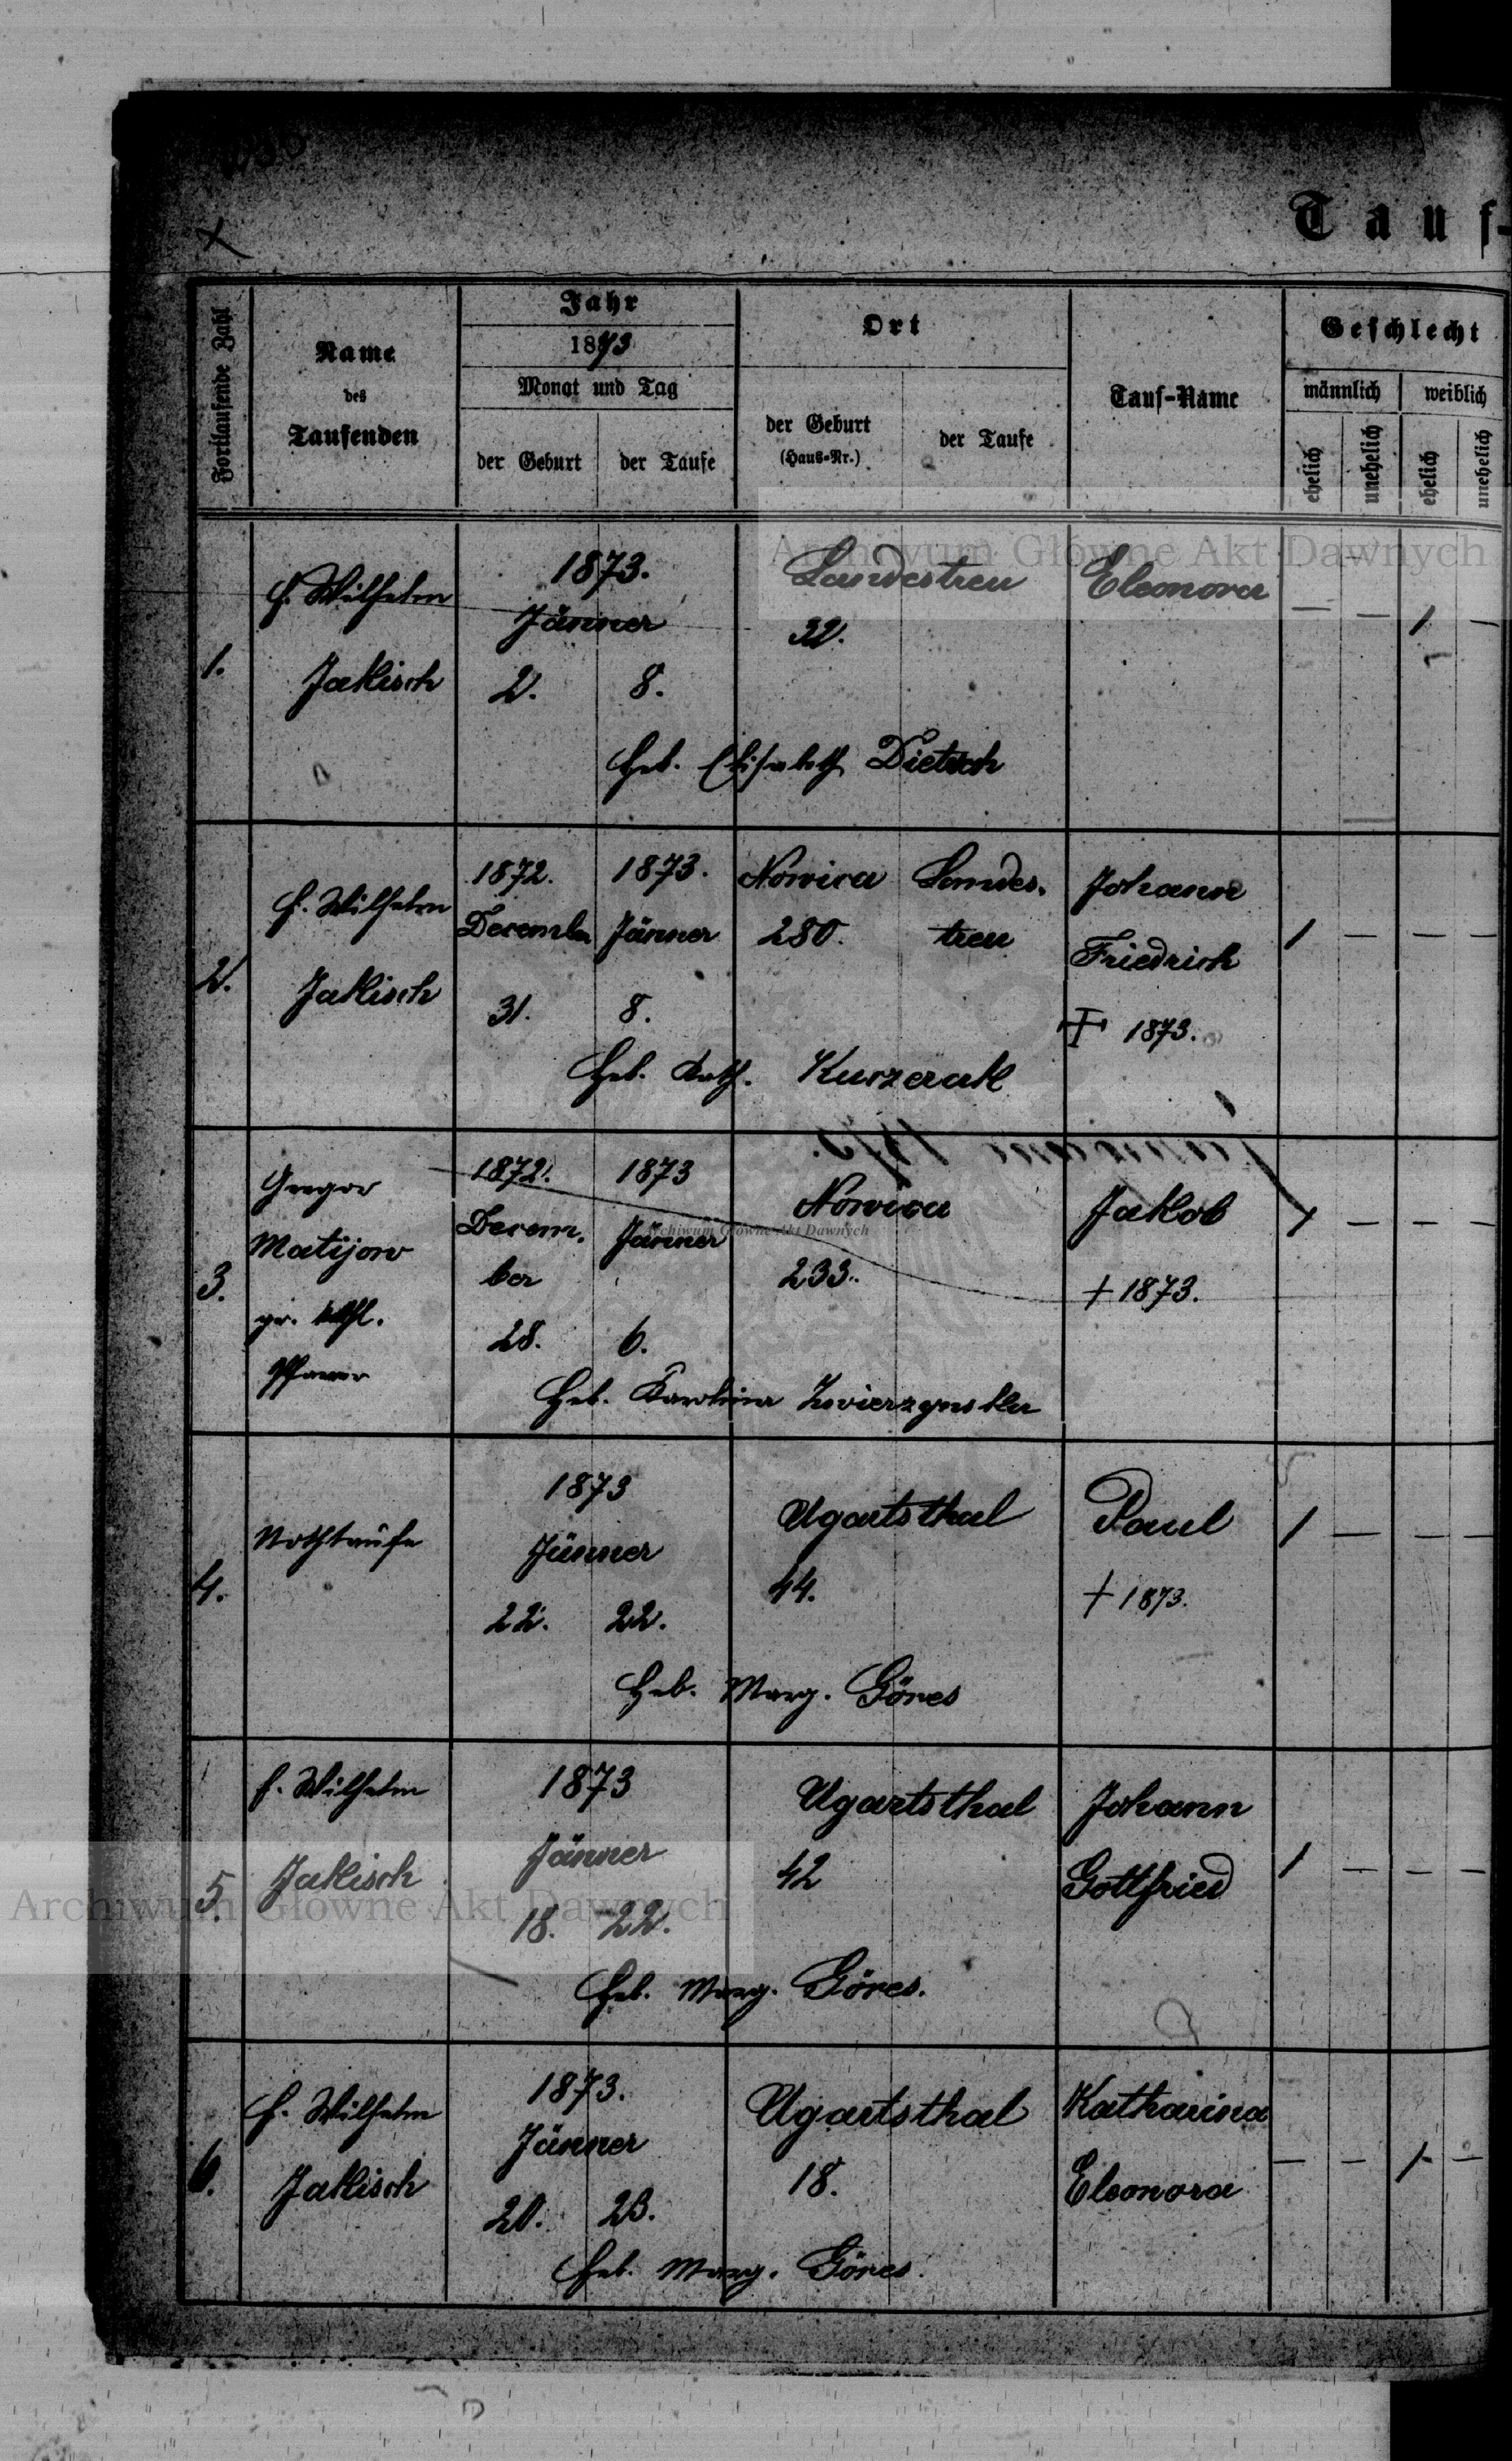 Tauf-
Fortlaufende Zahl
Name
des
Taufenden
Jahr
1873
Monat und Tag
der Geburt
der Taufe
Ort
der Geburt
(Haus-Nr.)
der Taufe
Tauf-Name
Geschlecht
männlich
weiblich
ehelich
unehelich
ehelich
unehelich
Archiwum Główne Akt Dawnych
1.
f. Wilhelm
Jakisch
1873.
Jänner
2. 8.
Landestreu
32.
Eleonora
— — 1 —
Heb. Elisabeth Dietrich
2.
f. Wilhelm
Jakisch
1872.
December
31.
1873.
Jänner
8.
Nowica
280.
Landes-
treu
Johann
Friedrich
† 1873.
1 — — —
Heb. Kath. Kurzerak
3.
Gregor
Matijow
gr. kath.
Pfarrer
1872.
Decem-
ber
28.
1873
Jänner
6.
Nowica
233.
Archiwum Główne Akt Dawnych
Jakob
† 1873.
1 — — —
Heb. Karolina Zwierzynska
4.
Nothtaufe
1873
Jänner
22. 22.
Ugartsthal
44.
Paul
† 1873.
1 — — —
Heb. Marg. Göres
5.
f. Wilhelm
Jakisch
1873
Jänner
18. 22.
Ugartsthal
42
Johann
Gottfried
1 — — —
Archiwum Główne Akt Dawnych
Heb. Marg. Göres.
6.
f. Wilhelm
Jakisch
1873.
Jänner
20. 23.
Ugartsthal
18.
Katharina
Eleonora
— — 1 —
Heb. Marg. Göres.